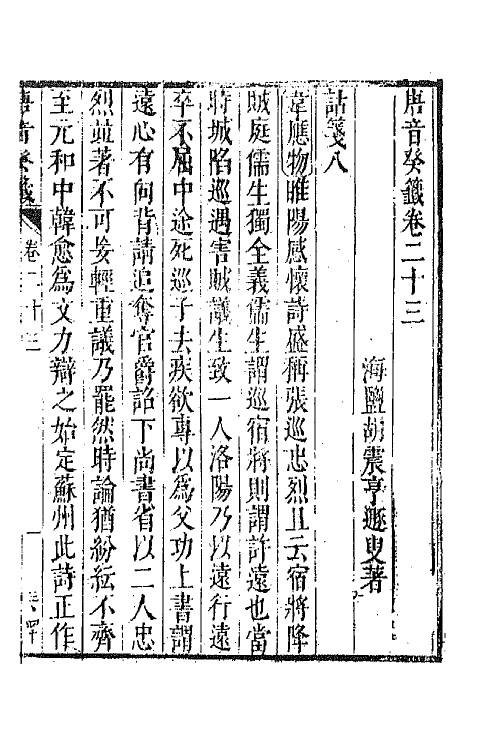 唐音癸籤卷二十三
海鹽胡震亨遯叟著
詁箋八
韋應物睢陽感懷詩盛稱張巡忠烈且云宿將降
賊庭儒生獨全義儒生謂巡宿將則謂許遠也當
時城陷巡遇害賊議生致一人洛陽乃以遠行遠
卒不屈中途死巡子去疾欲專以為父功上書謂
遠心有向背請追奪官爵詔下尚書省以二人忠
烈並著不可妄輕重議乃罷然時論猶紛紜不齊
至元和中韓愈為文力辯之始定蘇州此詩正作
唐音癸籤 卷二十三 一